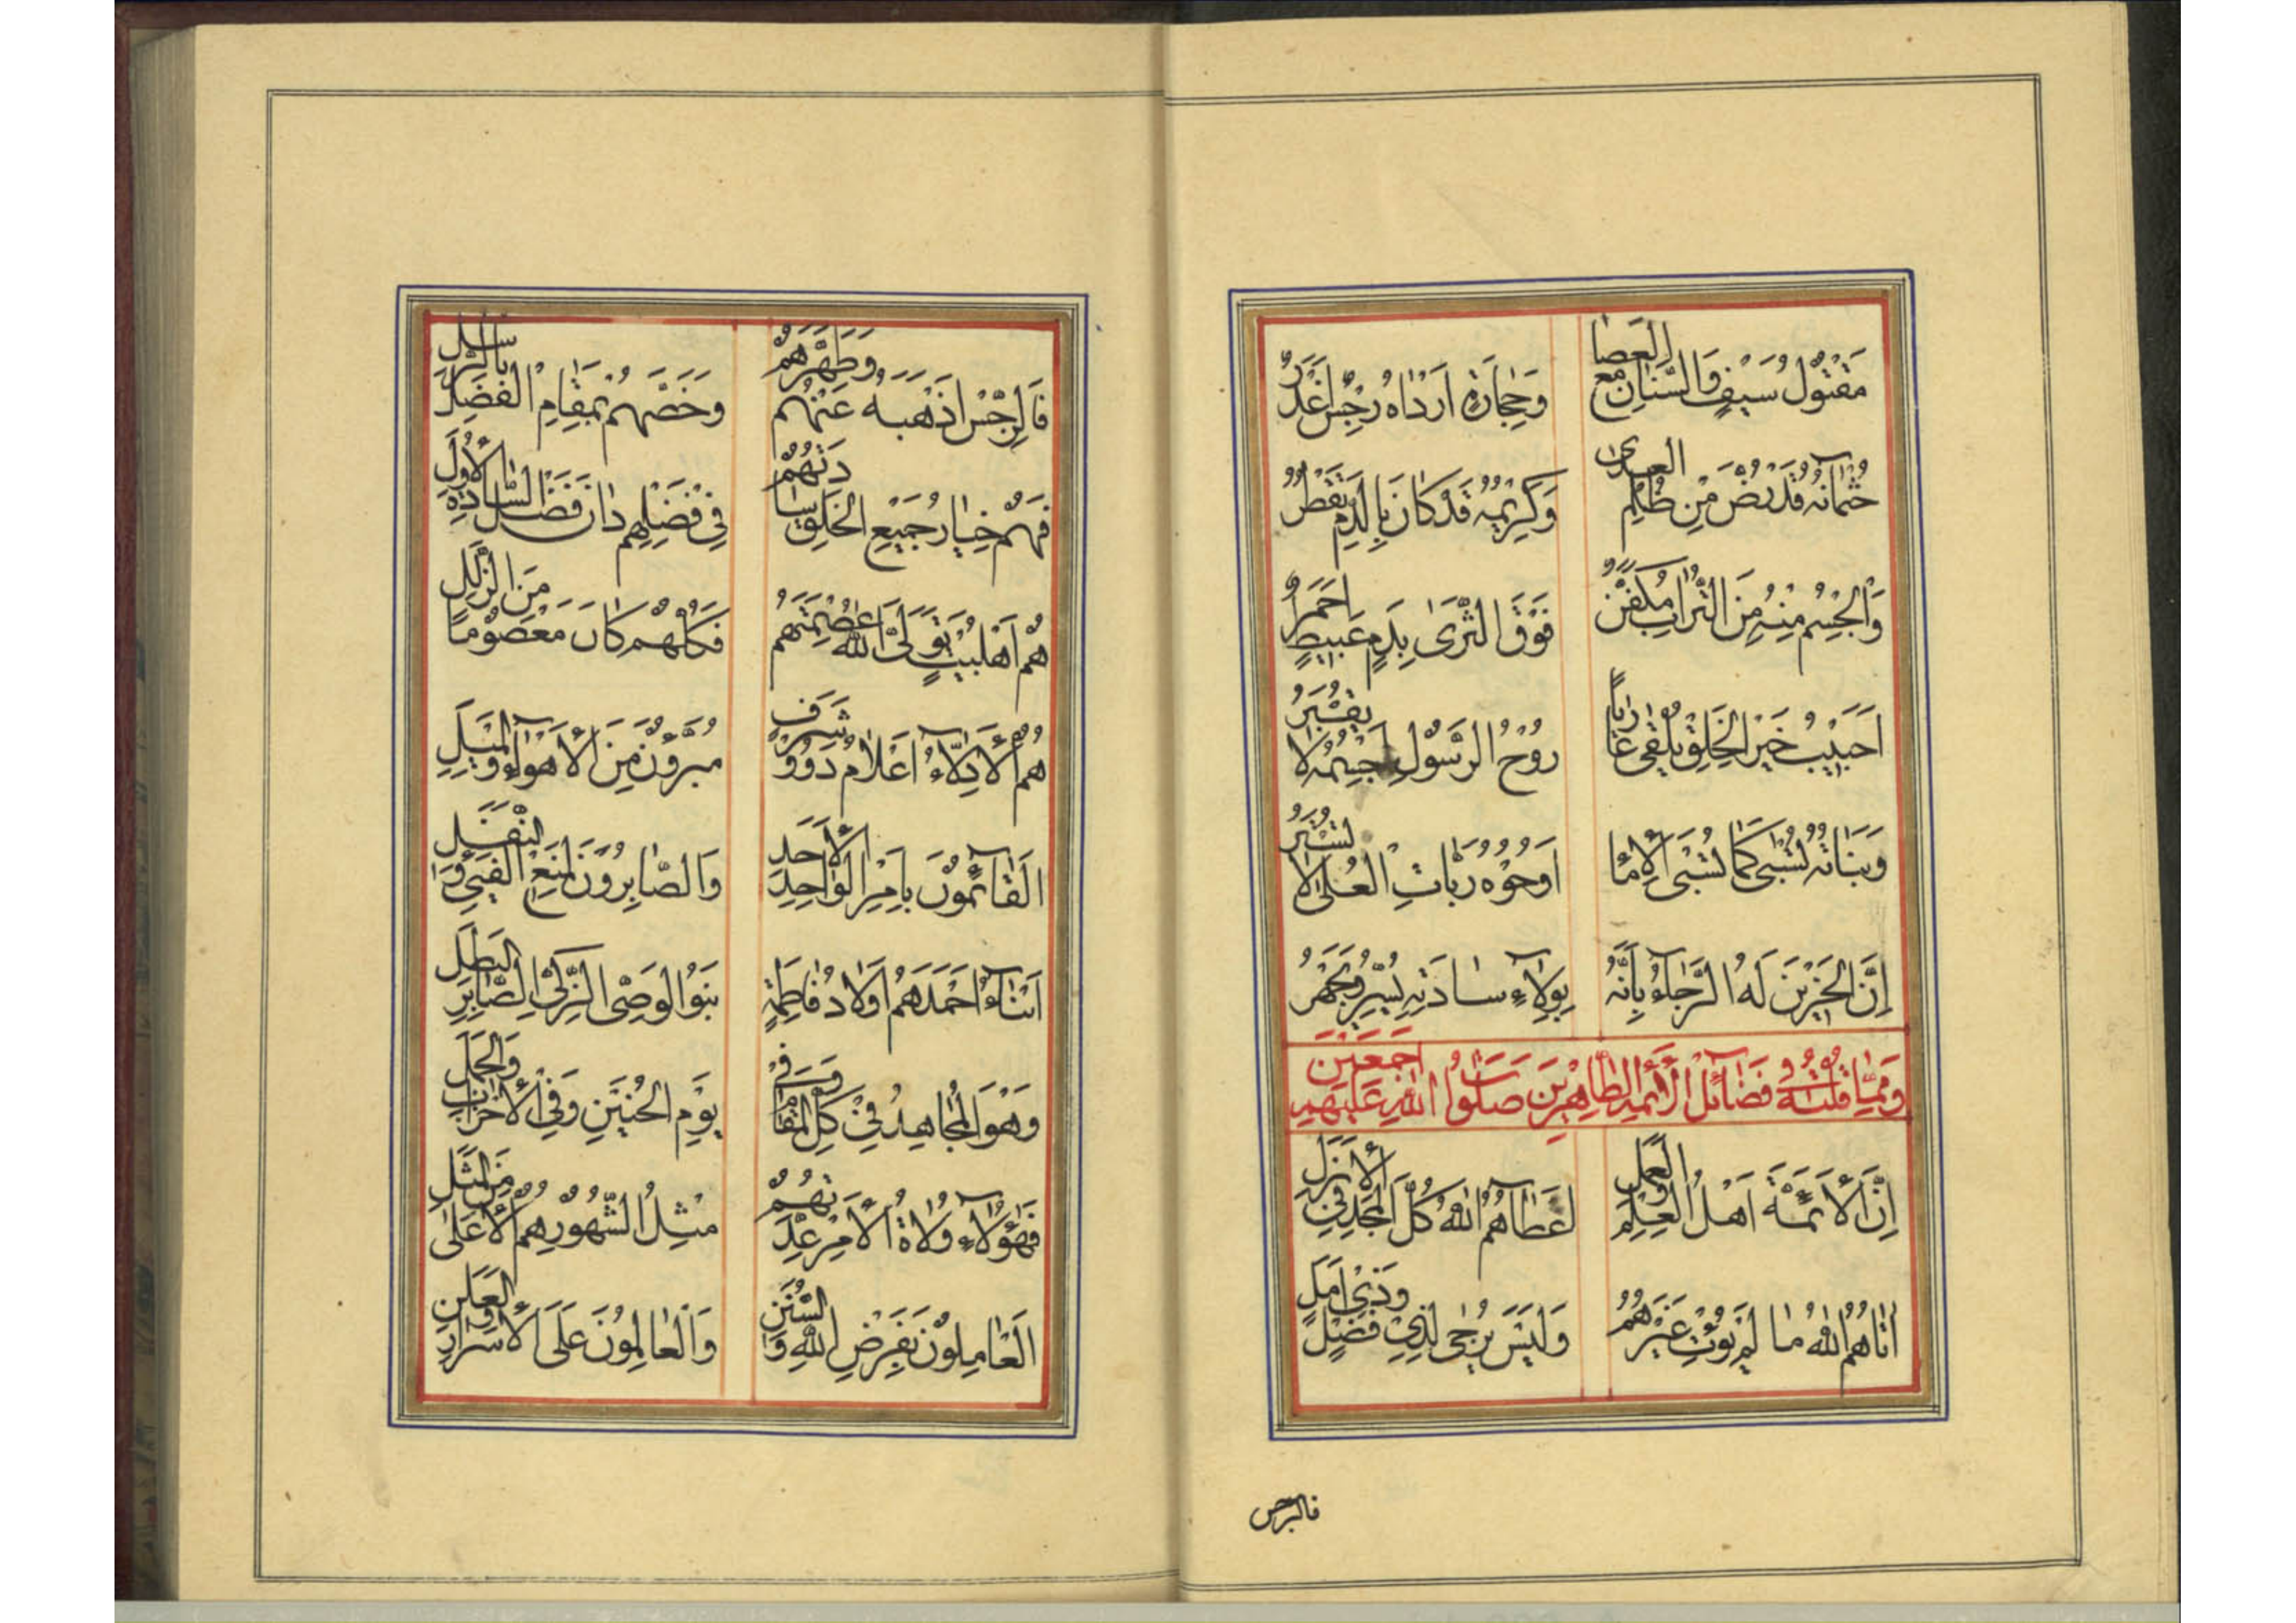 مَقْتُولُ سَيْفٍ وَالسَّنَانِ مَعَ العَصَا وَحِجَارَةٍ اَرْدَاهُ رِجْسٌ اَغْدَرُ
جُثْمَانُهُ قَدْ رُضَّ مِنْ ظُلْمِ العِدَى وَكَرِيمُهُ قَدْ كَانَ بِالدَمِ يَقْطُرُ
وَالجِسْمُ مِنْهُ مِنَ التُّرَابِ مُكَفَّنٌ فَوْقَ الثَّرَى بِدَمٍ عَبِيطٍ اَحْمَرُ
اَحَبِيبُ خَيْرِ الخَلْقِ يُلْقَى عَارِيًا رُوْحُ الرَّسُولِ جِسْمُهُ لَا يُقْبَرُ
وَبَنَاتُهُ تُسْبَى كَمَا تُسْبَى الْاِمَا رَبَّاتِ العُلَى لَا تُسْتَرُ
اِنَّ الحَزِيْنَ لَهُ الرَّجَاءُ بِاَنَّهُ بِوِلَاءِ سَادَتِهِ يُسَرُّ وَيُجْهَرُ
وَمِمَّا قُلْتُهُ فِي فَضَائِلِ الْاَئِمَّةِ الطَّاهِرِيْنَ صَلَوَاتُ اللهِ عَلَيْهِمْ اَجْمَعِيْنَ
اِنَّ الْاَئِمَّةَ اَهْلُ العِلْمِ وَالعَمَلِ اَعْطَاهُمُ اللهُ كُلَّ المَجْدِ فِي الْاَزَلِ
اٰتَاهُمُ اللهُ مَا لَمْ يُؤْتِ غَيْرَهُمُ وَلَيْسَ يُرْجَى لِذِيْ فَضْلٍ وَذِيْ اَمَلٍ
فالرجس
فَالرِّجْسَ اَذْهَبَهُ عَنْهُمْ وَطَهَّرَهُمْ وَخَصَّهُمْ بِمَقَامِ الفَضْلِ
فَهُمْ خِيَارُ جَمِيْعِ الخَلْقِ سَادَتُهُمْ فِي فَضْلِهِمْ دَانَ فَضْلُ السَّادَةِ الْاُوَلِ
هُمْ اَهْلُبَيْتٍ تَوَلَّى اللهُ عِصْمَتَهُمْ فَكُلُّهُمْ كَانَ مَعْصُوْمًا مِنَ الزَّلَلِ
هُمُ الْاَدِلَّاءُ اَعْلَامٌ ذَوُوْ شَرَفٍ مُبَرَّؤُنَ مِنَ الْاَهْوَاءِ وَالمَيَلِ
اَلقَائِمُوْنَ بِاَمْرِ الوَاحِدِ الْاَحَدِ وَالصَّابِرُوْنَ لِمَنْعِ الفَيْئِ وَالنَّفَلِ
اَبْنَاءُ اَحْمَدَ هُمْ اَوْلَادُ فَاطِمَةٍ بَنُوْا الوَصِيِّ الزَّكِيِّ الصَّابِرِ البَطَلِ
وَهُوَ المُجَاهِدُ فِيْ كُلِّ المَقَامِ وَفِي يَوْمِ الحُنَيْنِ وَفِي الْاَحْزَابِ وَالجَمَلِ
فَهٰؤُلَاءِ وُلَاةُ الْاَمْرِ عِدَّتُهُمْ مِثْلُ الشُّهُوْرِ هُمُ الْاَعْلَى مِنَ المَثَلِ
اَلعَامِلُوْنَ بِفَرْضِ اللهِ وَالسُّنَنِ وَالعَالِمُوْنَ عَلَى الْاَسْرَارِ وَالعَلَنِ